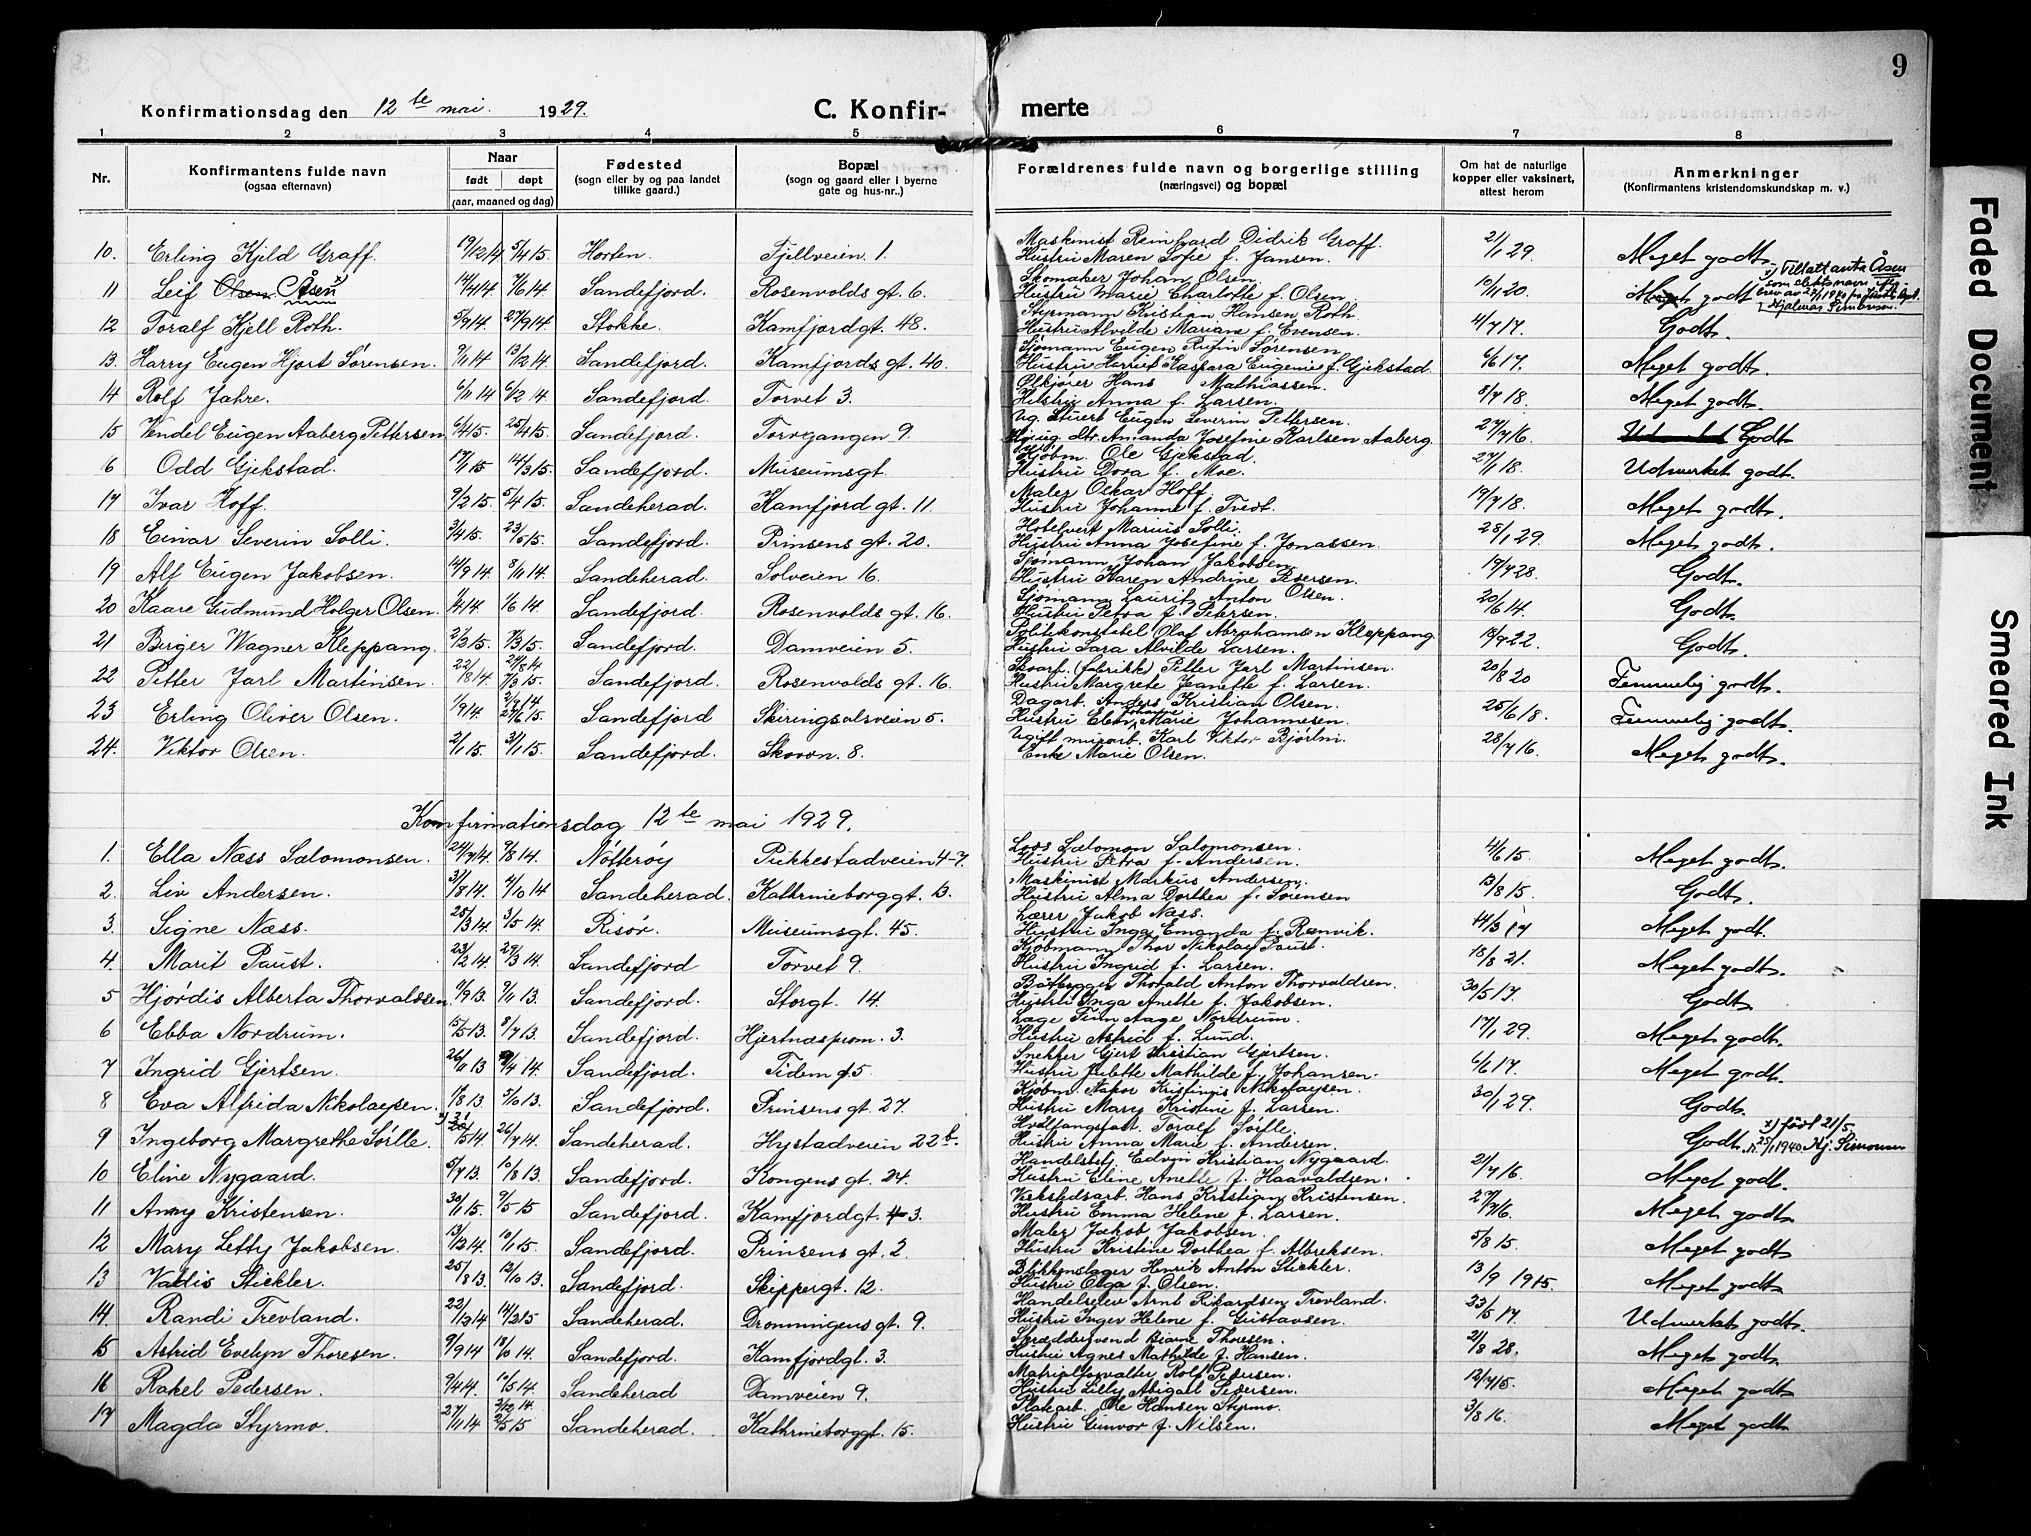 9
Konfirmationsdag den 12te mai. 1929. C. Konfirmerte
1 2 3 4 5 6 7 8
Nr. Konfirmantens fulde navn (ogsaa efternavn) Naar født døpt (aar, maaned og dag) Fødested (sogn eller by og paa landet tillike gaard.) Bopæl (sogn og gaard eller i byerne gate og hus-nr..) Forældrenes fulde navn og borgerlige stilling (næringsvei) og bopæl Om hat de naturlige kopper eller vaksinert, attest herom Anmerkninger (Konfirmantens kristendomskundskap m. v.)
10. Erling Kjeld Graff. 19/12 14 5/4 15 Horten. Fjellveien 1. Maskinist Reinhard Didrik Graff. Hustru Maren Sofie f. Jansen. 2/1 29. Meget godt.
11 Leif Olsen Åsen x) 14/4 14 7/6 14 Sandefjord. Rosenvolds gt. 6. Skomaker Johan Olsen Hustru Marie Charlotte f. Olsen. 10/1 20. Meget godt x) Tillatt anta Åsen som slektsnavn Hjalmar Simonsen.
12 Toralf Kjell Roth. 5/9 14. 27/9 14 Stokke. Kamfjordgt. 48. Styrmann Kristian Hansen Roth. Hustru Alvilde Mariane f. Evensen. 4/7 17. Godt.
13. Harry Eugen Hjort Sørensen. 9/1 14 13/2 14 Sandefjord. Kamfjords gt. 40. Sjømann Eugen Rufin Sørensen Hustru Harriet Kaspara Eugenie f. Gjekstad. 6/6 17. Meget godt.
14 Rolf Jahre. 6/11 14 6/2 14 Sandefjord. Torvet 3. Ølkjører Hans Mathiassen. Hustru Anna f. Larsen. 8/7 18. Meget godt.
15 Vendel Eugen Aaberg Pettersen 6/4 15. 25/4 15. Sandefjord. Torvgangen 9. Ug. Stuert Eugen Severin Pettersen. Pike ug. dtr. Amanda Josefine Karlsen Aaberg. 27/7 16. Godt
6 Odd Gjekstad. 17/1 15 14/3 15. Sandefjord. Museumsgt. Kjøbm. Ole Gjekstad. Hustru Dora f. Moe. 27/1 18. Udmerket godt.
17 Ivar Hoff. 9/2 15. 5/4 15. Sandeherad. Kamfjord gt. 11. Maler Oskar Hoff. Hustru Johanne f. Tvedt. 19/7 18. Meget godt.
18 Einar Severin Solli. 3/4 15. 23/5 15. Sandefjord. Prinsens gt. 20. Hotelvert Marius Solli. Hustru Anna Josefine f. Jonassen. 28/1 29. Meget godt.
19 Alf Eugen Jakobsen. 14/9 14. 8/11 14. Sandeherad. Solveien 16. Sjømann Johan Jakobsen Hustru Karen Andrine Pedersen. 19/7 28. Godt.
20 Kaare Gudmund Holger Olsen. 1/4 14. 1/6 14. Sandefjord. Rosenvolds gt. 16. Sjømann Lauritz Anton Olsen. Hustru Petra f. Petersen. 20/6 14. Godt.
21 Birger Wagner Kleppang. 2/2 15. 7/3 15. Sandefjord. Damveien 5. Politikonstabel Olaf Abrahamsen Kleppang. Hustru Sara Alvilde Larsen. 18/9 22. Godt.
22 Petter Jarl Martinsen. 22/8 14. 24/8 14 7/3 15. Sandefjord. Rosenvolds gt. 16. Skoarb. (fabrikk) Petter Jarl Martinsen. Hustru Margrete Jeanette f. Larsen. 20/8 20 Temmelig godt.
23 Erling Oliver Olsen. 1/9 14. 27/6 15. Sandefjord Skiringsalsveien 5. Dagarb. Anders Kristian Olsen. Hustru Elen Johanne Marie Johannesen. 25/6 18. Temmelig godt.
24. Viktor Olsen. 2/1 15. 3/1 15. Sandefjord. Skovvn. 8. Ugift murarb. Karl Viktor Bjørlin. Enke Marie Olsen. 28/7 16. Meget godt.
Konfirmationsdag 12te mai 1929.
1. Ella Næss Salomonsen. 24/7 14. 9/8 14. Nøtterøy Pukkestadveien 4-7. Loos Salomon Salomonsen. Hustru Petra f. Andersen. 4/6 15. Meget godt.
2. Liv Andersen. 31/8 14. 4/10 14 Sandeherad. Kathrineborggt. 13. Maskinist Markus Andersen. Hustru Alma Dorthea f. Sørensen 13/8 15. Godt.
3. Signe Næss. 28/3 14. 3/5 14. Risør. Museumsgt. 45. Lærer Jakob Næss. Hustru Inga Emanda f. Rønvik. 14/3 17 Meget godt.
4. Marit Paust. 23/2 14. 29/3 14. Sandefjord Torvet 9. Kjøbmann Thor Nikolay Paust. Hustru Ingrid f. Larsen. 18/8 21. Meget godt.
5 Hjørdis Alberta Thorvaldsen 9/9 13. 9/11 13. Sandefjord. Storgt. 14. Båtbygger Thorald Anton Thorvaldsen. Hustru Inga Anette f. Jakobsen. 30/5 17. Godt
6 Ebba Nordrum. 15/5 13. 8/7 13. Sandefjord. Hjertnæsprom. 3. Læge Finn Aage Nordrum. Hustru Astrid f. Lund. 17/1 29. Meget godt.
7 Ingrid Gjertsen. 26/11 13 9/4 14. Sandefjord. Tidem gt. 5. Snekker Gjert Kristian Gjertsen. Hustru Julette Mathilde f. Johansen. 6/1 17. Meget godt.
8 Eva Alfrida Nikolaysen. 18/8 13. 5/10 13. Sandefjord. Prinsens gt. 27. Kjøbm. Aksel Kristinus Nikolaysen. Hustru Mary Kristine f. Larsen. 30/1 29. Godt.
9 Ingeborg Margrethe Sørlle. x) 21/5 14. 26/7 14. Sandeherad. Hystadveien 22b. Hvalfangstarb. Toralf Sørlle. Hustru Anna Marie f. Andersen. Godt. x) født 21/5. 25/1 1940 Hj. Simonsen
10 Eline Nygaard. 5/7 13. 10/8 13. Sandefjord. Kongens gt. 24. Handelsbetj. Edvin Kristian Nygaard. Hustru Eline Anette f. Haavaldsen. 2/7 16. Meget godt.
11 Anny Kristensen. 30/1 15. 9/5 15 Sandefjord. Kamfjordgt. 43. Verkstedsarb. Hans Kristian Kristensen. Hustru Emma Helene f. Larsen. 27/7 16. Meget godt.
12 Mary Letty Jakobsen. 13/12 14. 10/1 15. Sandefjord. Prinsens gt. 2. Maler Jakob Jakobsen. Hustru Kristine Dorthea f. Albreksen. 5/8 15. Meget godt
13 Valdis Stickler. 25/8 13. 12/10 13. Sandefjord. Skippergt. 12. Blikkenslager Henrik Anton Stickler. Hustru Olga f. Olsen. 13/9 1915. Meget godt.
14. Randi Trevland. 22/12 14 14/2 15 Sandeherad. Dronningens gt. 9. Handelselev Arnt Rikardsen Trevland. Hustru Inger Helene f. Gustavsen. 23/5 17. Udmerket godt.
15 Astrid Evelyn Thoresen. 9/9 14 18/10 14. Sandefjord. Kamfjordgt. 3. Skræddersvend Bjarne Thoresen. Hustru Agnes Mathilde f. Hansen. 21/8 28. Meget godt.
16 Rakel Pedersen. 9/4 14. 10/5 14. Sandeherad Damveien 9. Matrialforvalter Rolf Pedersen. Hustru Lilly Abigael Pedersen. 12/7 15. Meget godt.
17 Magda Styrmo. 27/11 14 2/12 14. 2/5 15 Sandeherad. Kathrineborggt. 15. Platearb. Ole Hansen Styrmo. Hustru Gunvor f. Nilsen. 3/8 16. Meget godt.
Faded Document
Smeared Ink